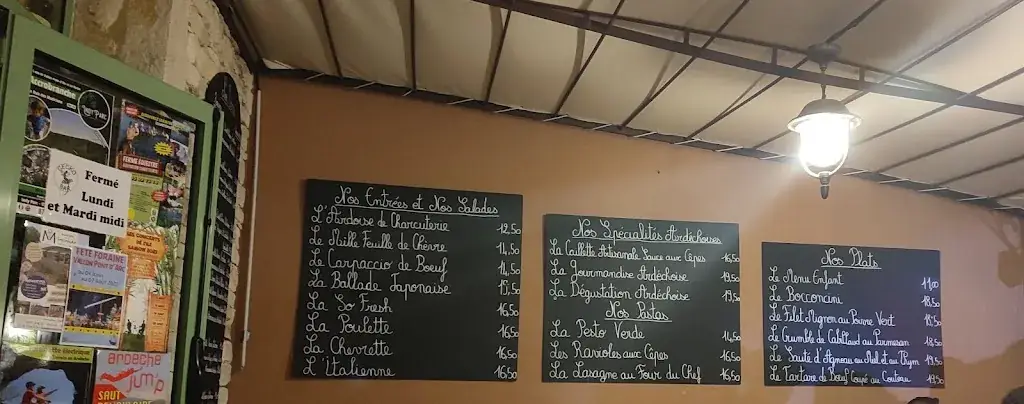 Accrobranche
FERME ÉQUESTRE
Fermé
Lundi
et Mardi midi
FÊTE FORAINE
VALLON PONT D'ARC
ARDECHE
JUMP
SAUT
Nos Entrées et Nos Salades
L'Ardoise de Charcuterie 12,50
Le Mille Feuille de Chèvre 11,50
Le Carpaccio de Boeuf
La Ballade Japonaise
La So Fresh 16,50
La Poulette 16,50
La Chevrette 16,50
L'Italienne 16,50
Nos Spécialités Ardéchoises
La Caillette Artisanale Sauce aux Cèpes 16,50
La Gourmandise Ardéchoise 19,50
La Dégustation Ardéchoise 19,50
Nos Pastas
La Pesto Verde 14,50
Les Ravioles aux Cèpes 16,50
La Lasagne au Four du Chef 16,50
Nos Plats
Le Menu Enfant 11,00
Le Bocconcini 18,50
Le Filet Mignon au Poivre Vert 18,50
Le Crumble de Cabillaud au Parmesan 18,50
Le Sauté d'Agneau au Miel et au Thym 19,50
Le Tartare de Boeuf Coupé au Couteau 19,50